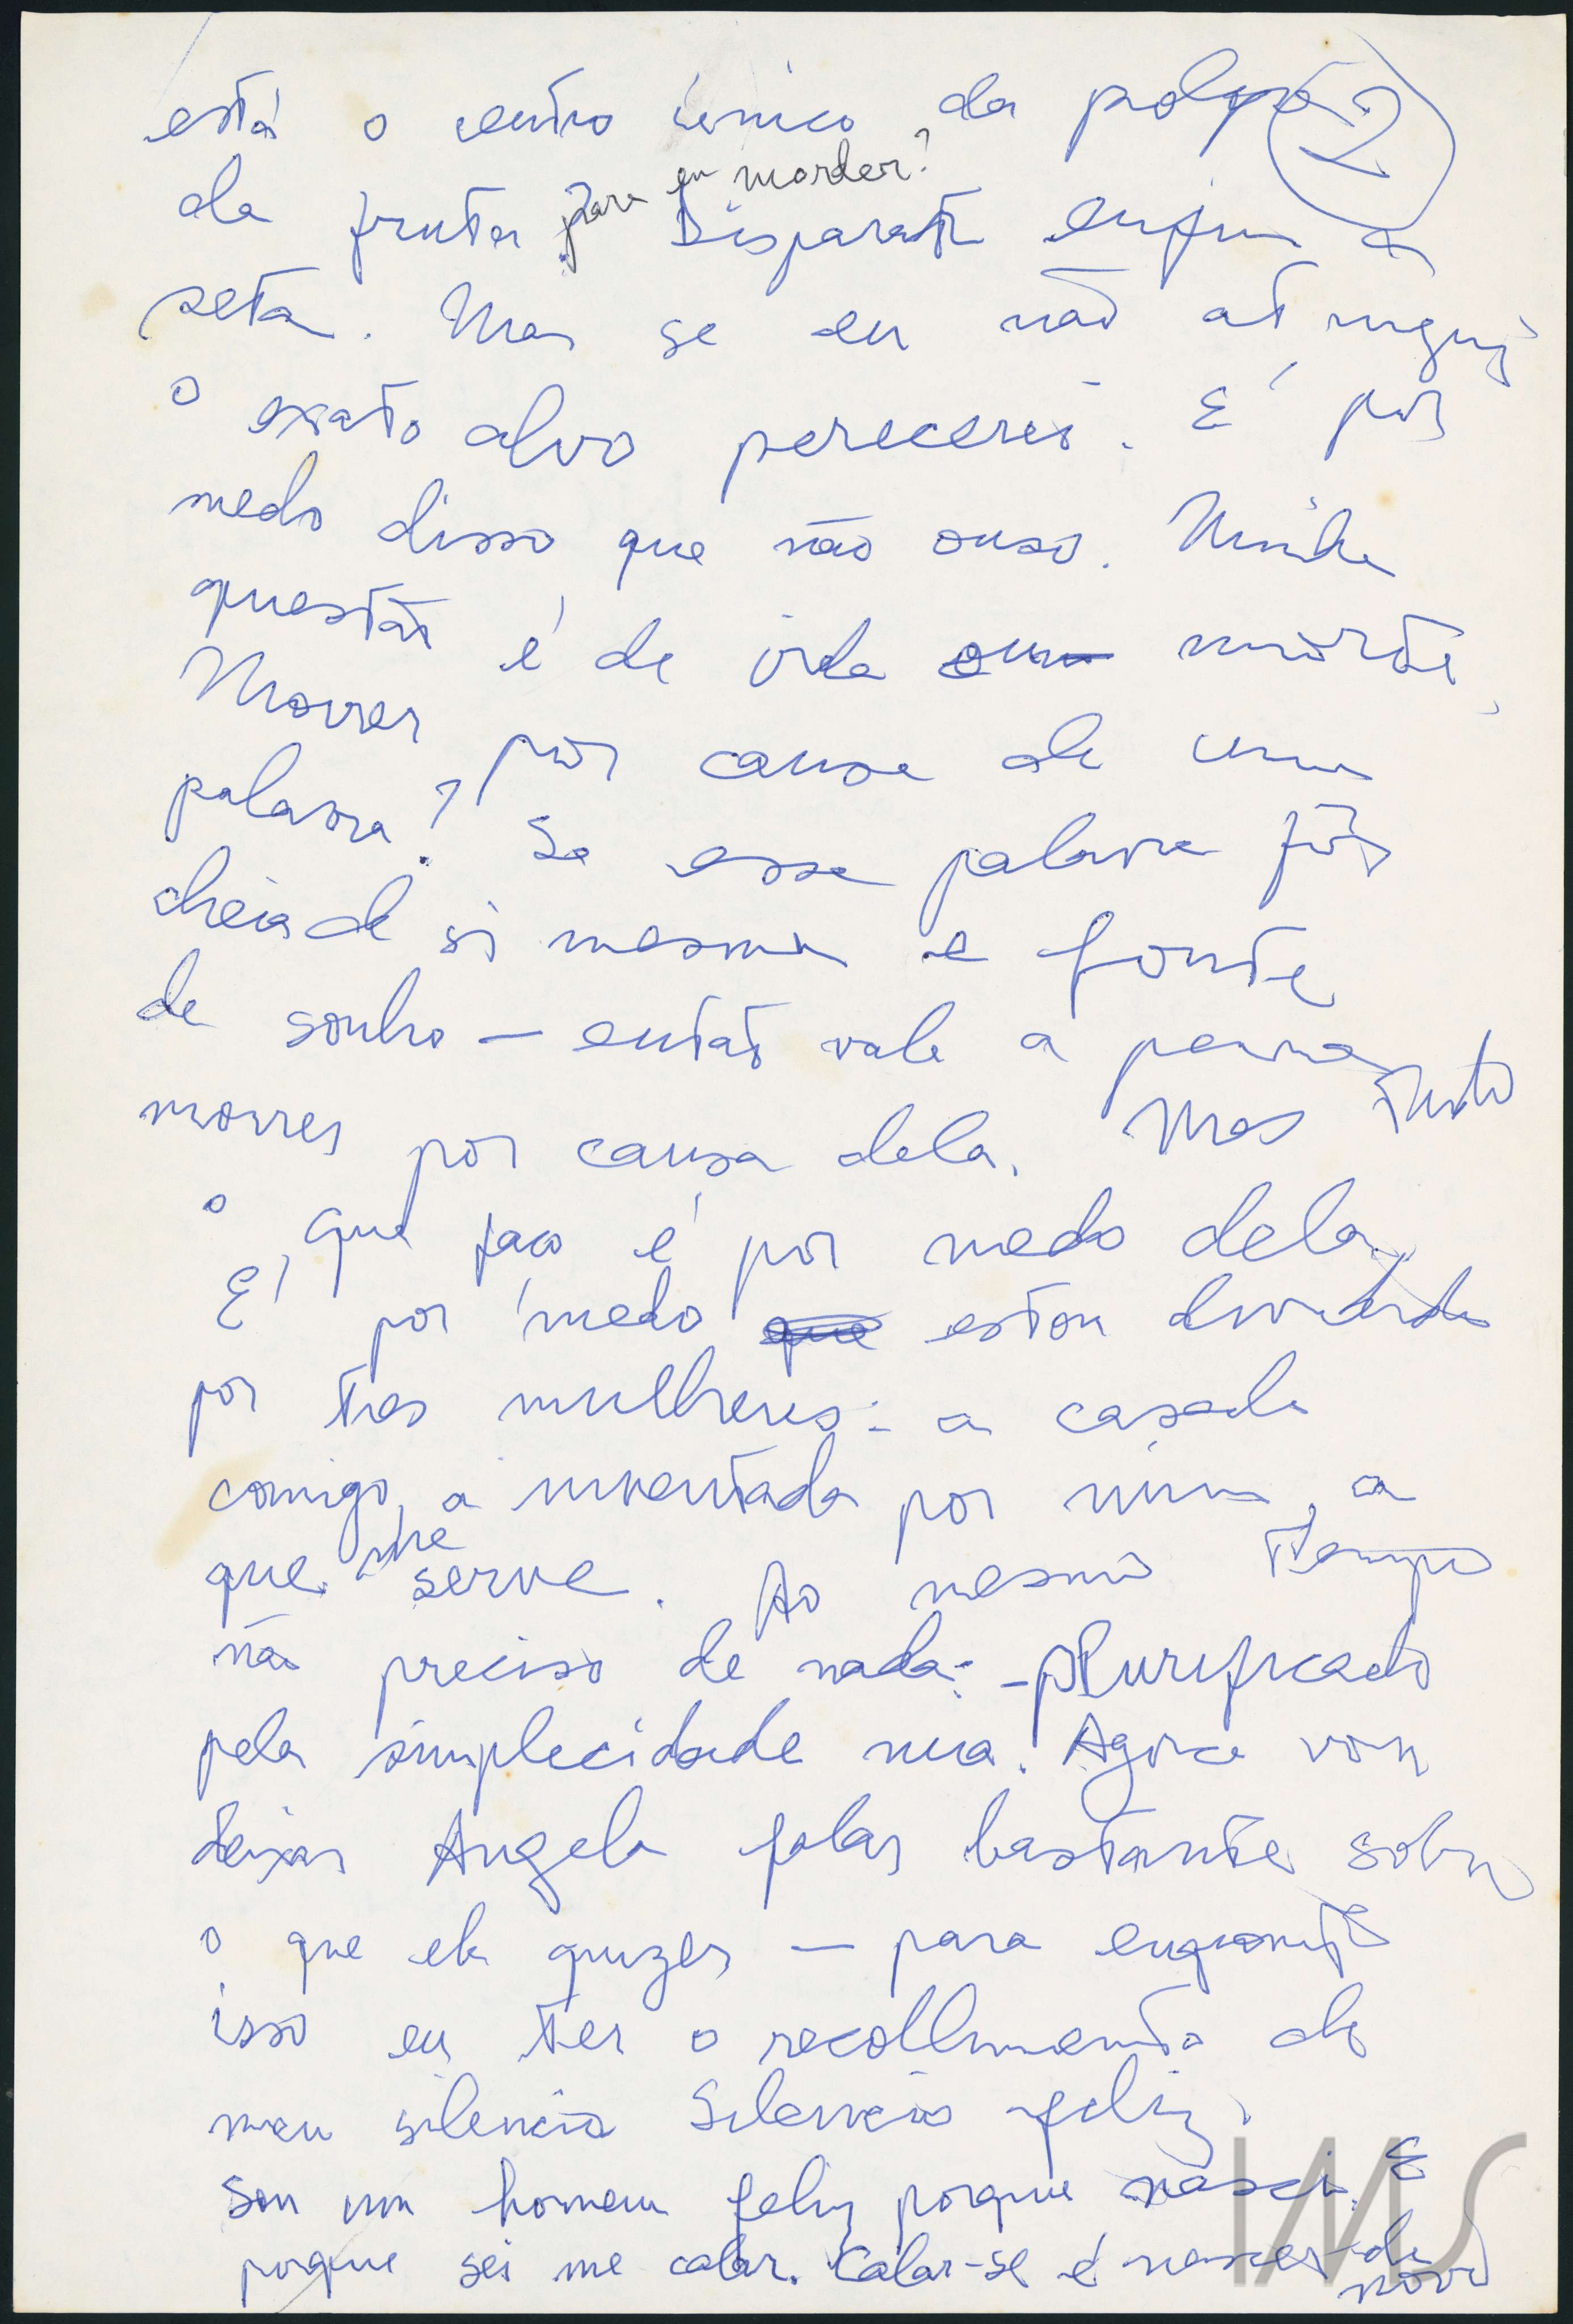 está o centro único da polpa 2
da fruta para eu morder? Disparate enfim a
seta. Mas se eu não atingir
o exato alvo perecerei. É por
medo disso que não ouso. Minha
questão é de vida ou morte.
Morrer por causa de uma
palavra? Se essa palavra fôr
cheia de si mesma e fonte
de sonho — então vale a penna
morrer por causa dela. Mas tudo
o que faço é por medo dela.
É por medo que estou dividido
por tres mulheres: a casada
comigo, a inventada por mim, a
que me serve. Ao mesmo tempo
não preciso de nada: - Purificado
pela simplecidade nua. Agora vou
deixar Angela falar bastante sobre
o que ela quizer — para enquanto
isso eu ter o recolhimento do
meu silencio Silencio feliz.
Sou um homem feliz porque nasci. E
porque sei me calar. Calar-se é nascer de
novo
IMS